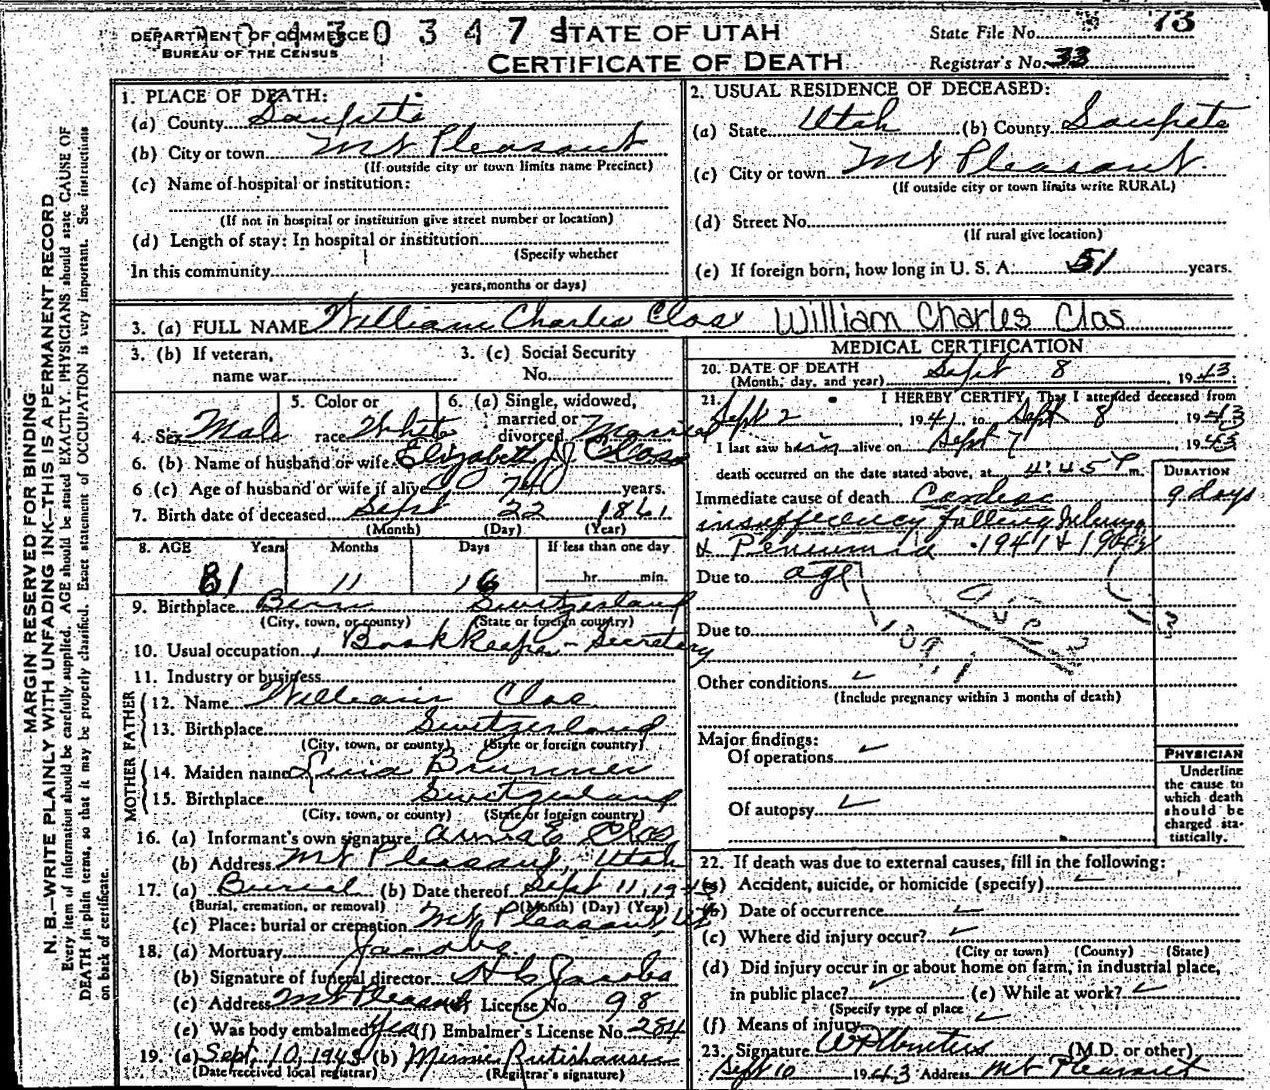 DEPARTMENT OF COMMERCE
BUREAU OF THE CENSUS
0 3 4 7 1
STATE OF UTAH
CERTIFICATE OF DEATH
State File No. 73
Registrar's No. 33
MARGIN RESERVED FOR BINDING
N. B.—WRITE PLAINLY WITH UNFADING INK—THIS IS A PERMANENT RECORD
Every item of information should be carefully supplied. AGE should be stated EXACTLY. PHYSICIANS should state CAUSE OF
DEATH in plain terms, so that it may be properly classified. Exact statement of OCCUPATION is very important. See instructions
on back of certificate.
1. PLACE OF DEATH:
(a) County Sanpete
(b) City or town Mt Pleasant
(If outside city or town limits name Precinct)
(c) Name of hospital or institution:
(If not in hospital or institution give street number or location)
(d) Length of stay: In hospital or institution
(Specify whether
In this community
years, months or days)
2. USUAL RESIDENCE OF DECEASED:
(a) State Utah (b) County Sanpete
(c) City or town Mt Pleasant
(If outside city or town limits write RURAL)
(d) Street No.
(If rural give location)
(e) If foreign born, how long in U. S. A. 51 years.
3. (a) FULL NAME William Charles Clos William Charles Clos
3. (b) If veteran,
name war
3. (c) Social Security
No.
4. Sex Male
5. Color or
race White
6. (a) Single, widowed,
married or
divorced Married
6. (b) Name of husband or wife Elizabeth J Clos
6 (c) Age of husband or wife if alive 74 years.
7. Birth date of deceased Sept 22 1861
(Month) (Day) (Year)
8. AGE Years Months Days If less than one day
81 11 16 hr. min.
9. Birthplace Bern Switzerland
(City, town, or county) (State or foreign country)
10. Usual occupation Bookkeeper - Secretary
11. Industry or business
FATHER
12. Name William Clos
13. Birthplace Switzerland
(City, town, or county) (State or foreign country)
MOTHER
14. Maiden name Brunner
15. Birthplace Switzerland
(City, town, or county) (State or foreign country)
16. (a) Informant's own signature Clos
(b) Address Mt Pleasant, Utah
17. (a) Burial (b) Date thereof Sept 11, 1943
(Burial, cremation, or removal) (Month) (Day) (Year)
(c) Place: burial or cremation Mt Pleasant, Ut
18. (a) Mortuary Jacobs
(b) Signature of funeral director Jacobs
(c) Address Mt Pleasant License No. 98
(e) Was body embalmed Yes (f) Embalmer's License No. 284
19. (a) Sept. 10, 1943 (b) Minnie
(Date received local registrar) (Registrar's signature)
MEDICAL CERTIFICATION
20. DATE OF DEATH
(Month, day, and year) Sept 8, 1943.
21. I HEREBY CERTIFY, That I attended deceased from
Sept 2, 1941, to Sept 8 1943
I last saw him alive on Sept 7 1943
death occurred on the date stated above, at 4:45 P m.
DURATION
Immediate cause of death Cardiac 9 days
insufficiency
1941 &
Due to age
Due to
Other conditions
(Include pregnancy within 3 months of death)
Major findings:
Of operations
Of autopsy
PHYSICIAN
Underline
the cause to
which death
should be
charged sta-
tistically.
22. If death was due to external causes, fill in the following:
(a) Accident, suicide, or homicide (specify)
(b) Date of occurrence
(c) Where did injury occur?
(City or town) (County) (State)
(d) Did injury occur in or about home on farm, in industrial place,
in public place? (e) While at work?
(Specify type of place
(f) Means of injury
23. Signature (M.D. or other)
Sept 10 1943 Address Mt Pleasant